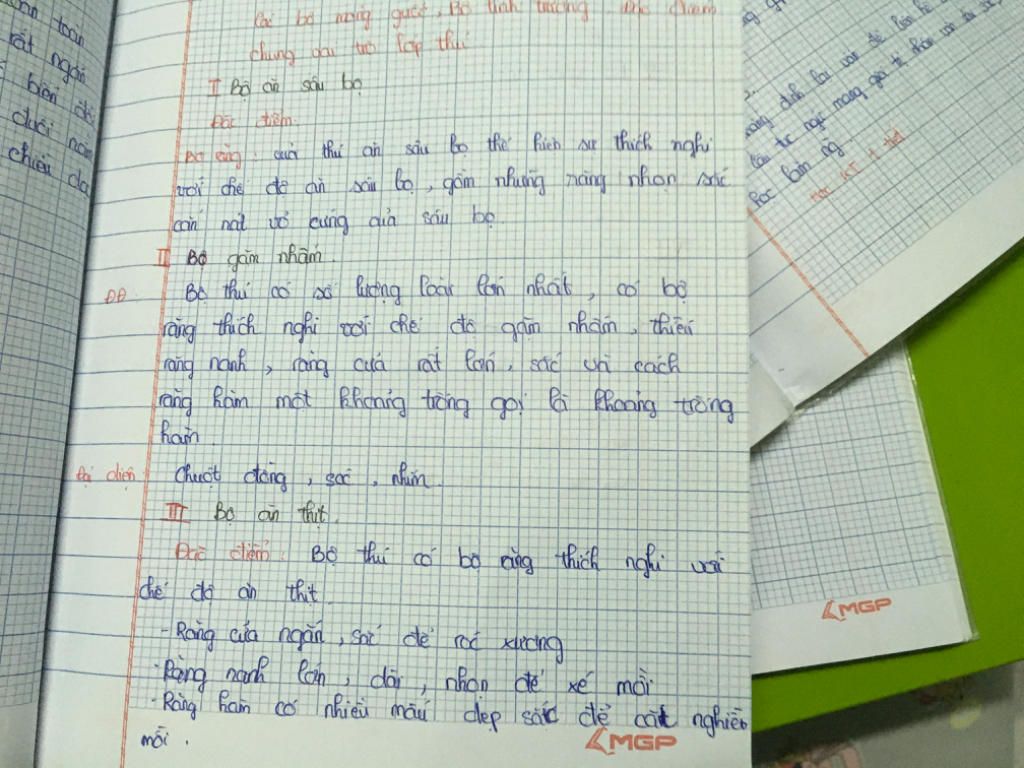 chung vai trò lớp thú
I Bộ ăn sâu bọ
Đặc điểm
Bộ răng: của thú ăn sâu bọ thể hiện sự thích nghi
với chế độ ăn sâu bọ, gồm những răng nhọn sắc
cắn nát vỏ cứng của sâu bọ.
II Bộ gặm nhấm.
ĐĐ: Bộ thú có số lượng loài lớn nhất, có bộ
răng thích nghi với chế độ gặm nhấm, thiếu
răng nanh, răng cửa rất lớn, sắc và cách
răng hàm một khoảng trống gọi là khoảng trống
hàm.
Đại diện: chuột đồng, sóc, nhím.
III Bộ ăn thịt.
Đặc điểm: Bộ thú có bộ răng thích nghi với
chế độ ăn thịt
- Răng cửa ngắn, sắc để róc xương
- Răng nanh lớn, dài, nhọn để xé mồi
- Răng hàm có nhiều mấu dẹp sắc để cắt nghiền
mồi.
MGP
MGP
toàn
rất ngắn
biến đổi
dưới
chiều